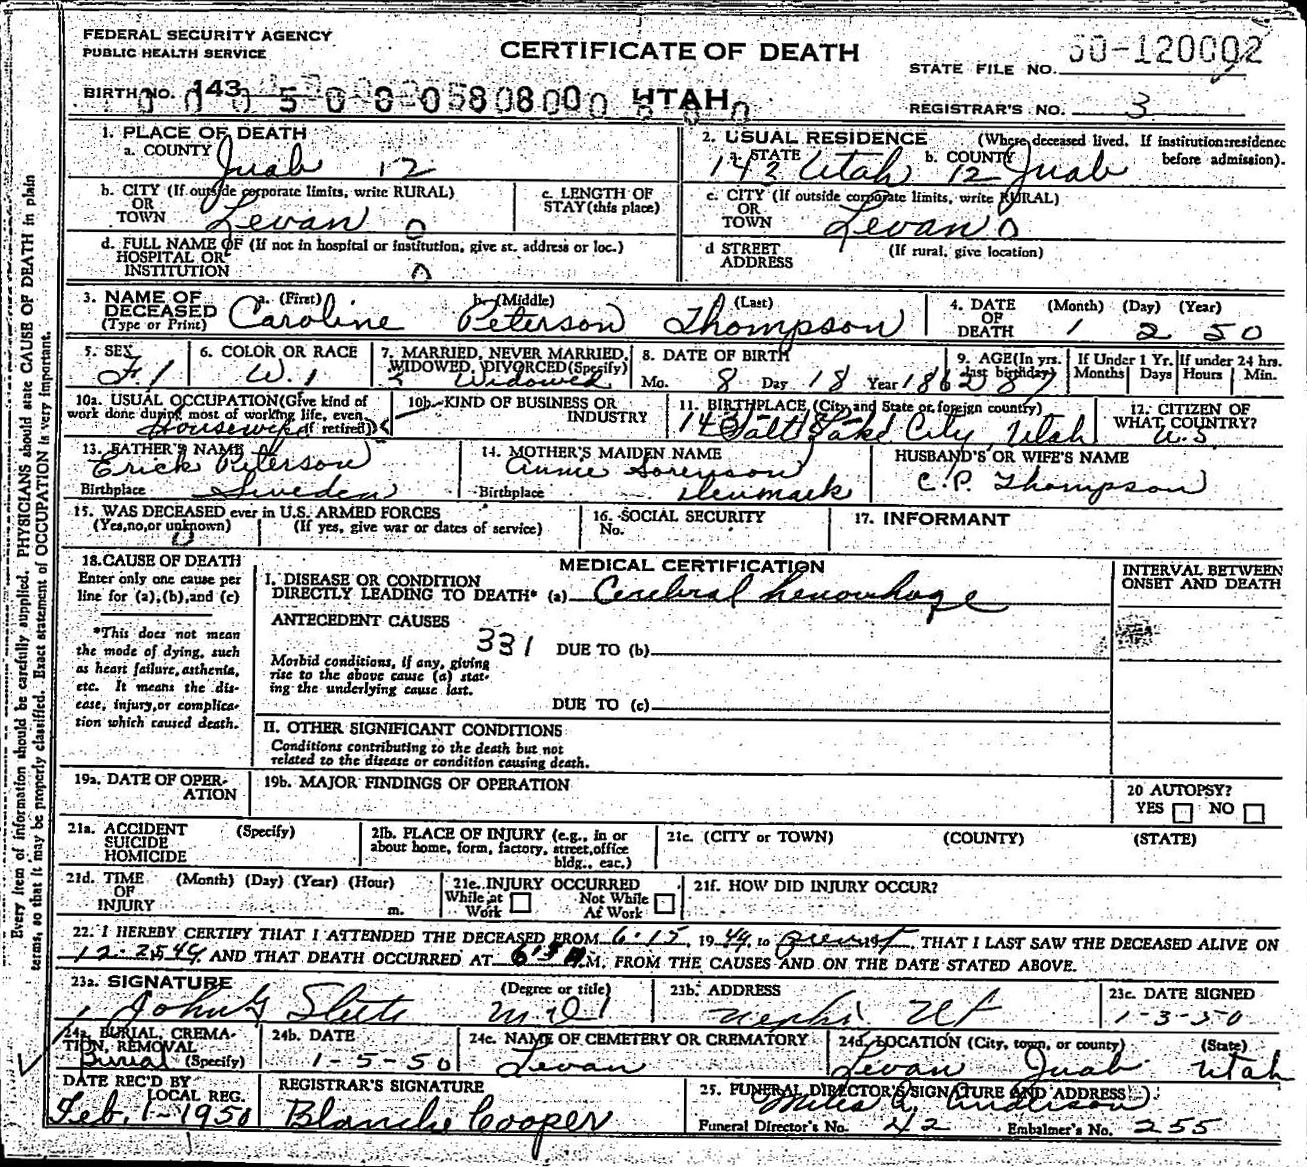 FEDERAL SECURITY AGENCY
PUBLIC HEALTH SERVICE
CERTIFICATE OF DEATH
UTAH
STATE FILE NO. 50-120002
BIRTH NO. 143
REGISTRAR'S NO. 3
1. PLACE OF DEATH
a. COUNTY Juab 12
2. USUAL RESIDENCE (Where deceased lived. If institution:residence before admission).
a. STATE 143 Utah b. COUNTY 12 Juab
b. CITY (If outside corporate limits, write RURAL) OR TOWN Levan 0
c. LENGTH OF STAY(this place)
c. CITY (If outside corporate limits, write RURAL) OR TOWN Levan 0
d. FULL NAME OF (If not in hospital or institution, give st. address or loc.) HOSPITAL OR INSTITUTION 0
d STREET ADDRESS (If rural, give location)
3. NAME OF DECEASED (Type or Print)
a. (First) Caroline b. (Middle) Peterson (Last) Thompson
4. DATE OF DEATH (Month) (Day) (Year) 1 2 50
5. SEX F. 1
6. COLOR OR RACE W. 1
7. MARRIED, NEVER MARRIED, WIDOWED, DIVORCED(Specify) Widowed
8. DATE OF BIRTH Mo. 8 Day 18 Year 1862
9. AGE(In yrs. last birthday) 87
If Under 1 Yr. Months Days
If under 24 hrs. Hours Min.
10a. USUAL OCCUPATION(Give kind of work done during most of working life, even if retired) Housewife
10b. KIND OF BUSINESS OR INDUSTRY
11. BIRTHPLACE (City and State or foreign country) Salt Lake City, Utah
12. CITIZEN OF WHAT COUNTRY? U.S
13. FATHER'S NAME Erick Peterson
Birthplace Sweden
14. MOTHER'S MAIDEN NAME Annie Sorenson
Birthplace Denmark
HUSBAND'S OR WIFE'S NAME
C.P. Thompson
15. WAS DECEASED ever in U.S. ARMED FORCES
(Yes,no,or unknown) 0 (If yes, give war or dates of service)
16. SOCIAL SECURITY No.
17. INFORMANT
18. CAUSE OF DEATH
Enter only one cause per line for (a),(b),and (c)
*This does not mean the mode of dying, such as heart failure, asthenia, etc. It means the disease, injury,or complication which caused death.
MEDICAL CERTIFICATION
INTERVAL BETWEEN ONSET AND DEATH
I. DISEASE OR CONDITION
DIRECTLY LEADING TO DEATH* (a) Cerebral hemorrhage
ANTECEDENT CAUSES
331
DUE TO (b)
Morbid conditions, if any, giving rise to the above cause (a) stating the underlying cause last.
DUE TO (c)
II. OTHER SIGNIFICANT CONDITIONS
Conditions contributing to the death but not related to the disease or condition causing death.
19a. DATE OF OPERATION
19b. MAJOR FINDINGS OF OPERATION
20 AUTOPSY?
YES NO
21a. ACCIDENT SUICIDE HOMICIDE (Specify)
21b. PLACE OF INJURY (e.g., in or about home, form, factory, street,office bldg., eac.)
21c. (CITY or TOWN) (COUNTY) (STATE)
21d. TIME OF INJURY (Month) (Day) (Year) (Hour) m.
21e. INJURY OCCURRED
While at Work Not While At Work
21f. HOW DID INJURY OCCUR?
22. I HEREBY CERTIFY THAT I ATTENDED THE DECEASED FROM 6-15, 1949, to present, THAT I LAST SAW THE DECEASED ALIVE ON
12-25 49, AND THAT DEATH OCCURRED AT M., FROM THE CAUSES AND ON THE DATE STATED ABOVE.
23a. SIGNATURE (Degree or title) M.D.
23b. ADDRESS Nephi Ut
23c. DATE SIGNED 1-3-50
24a. BURIAL, CREMATION, REMOVAL (Specify) Burial
24b. DATE 1-5-50
24c. NAME OF CEMETERY OR CREMATORY Levan
24d. LOCATION (City, town, or county) (State) Levan Juab Utah
DATE REC'D BY LOCAL REG. Feb. 1-1950
REGISTRAR'S SIGNATURE Blanche Cooper
25. FUNERAL DIRECTOR'S SIGNATURE AND ADDRESS Miles A. Anderson
Funeral Director's No. 42 Embalmer's No. 255
Every item of information should be carefully supplied. PHYSICIANS should state CAUSE OF DEATH in plain
terms, so that it may be properly classified. Exact statement of OCCUPATION is very important.